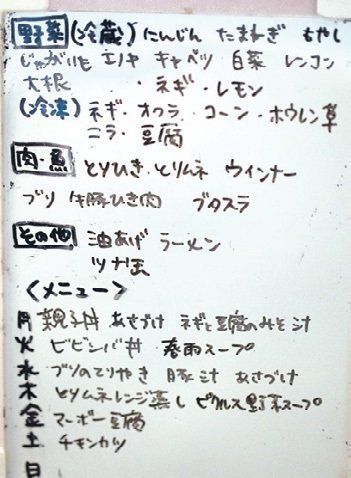 野菜 (冷蔵) にんじん たまねぎ もやし
じゃがいも エノキ キャベツ 白菜 レンコン
大根 ネギ・レモン
(冷凍) ネギ・オクラ・コーン・ホウレン草
ニラ・豆腐
肉・魚 とりひき とりムネ ウインナー
ブリ 牛豚ひき肉 ブタスラ
その他 油あげ ラーメン
ツナ缶
<メニュー>
月 親子丼 あさづけ ネギと豆腐のみそ汁
火 ビビンバ丼 春雨スープ
水 ブリのてりやき 豚汁 あさづけ
木 とりムネレンジ蒸し ピクルス 野菜スープ
金 マーボー豆腐
土 チキンカツ
日